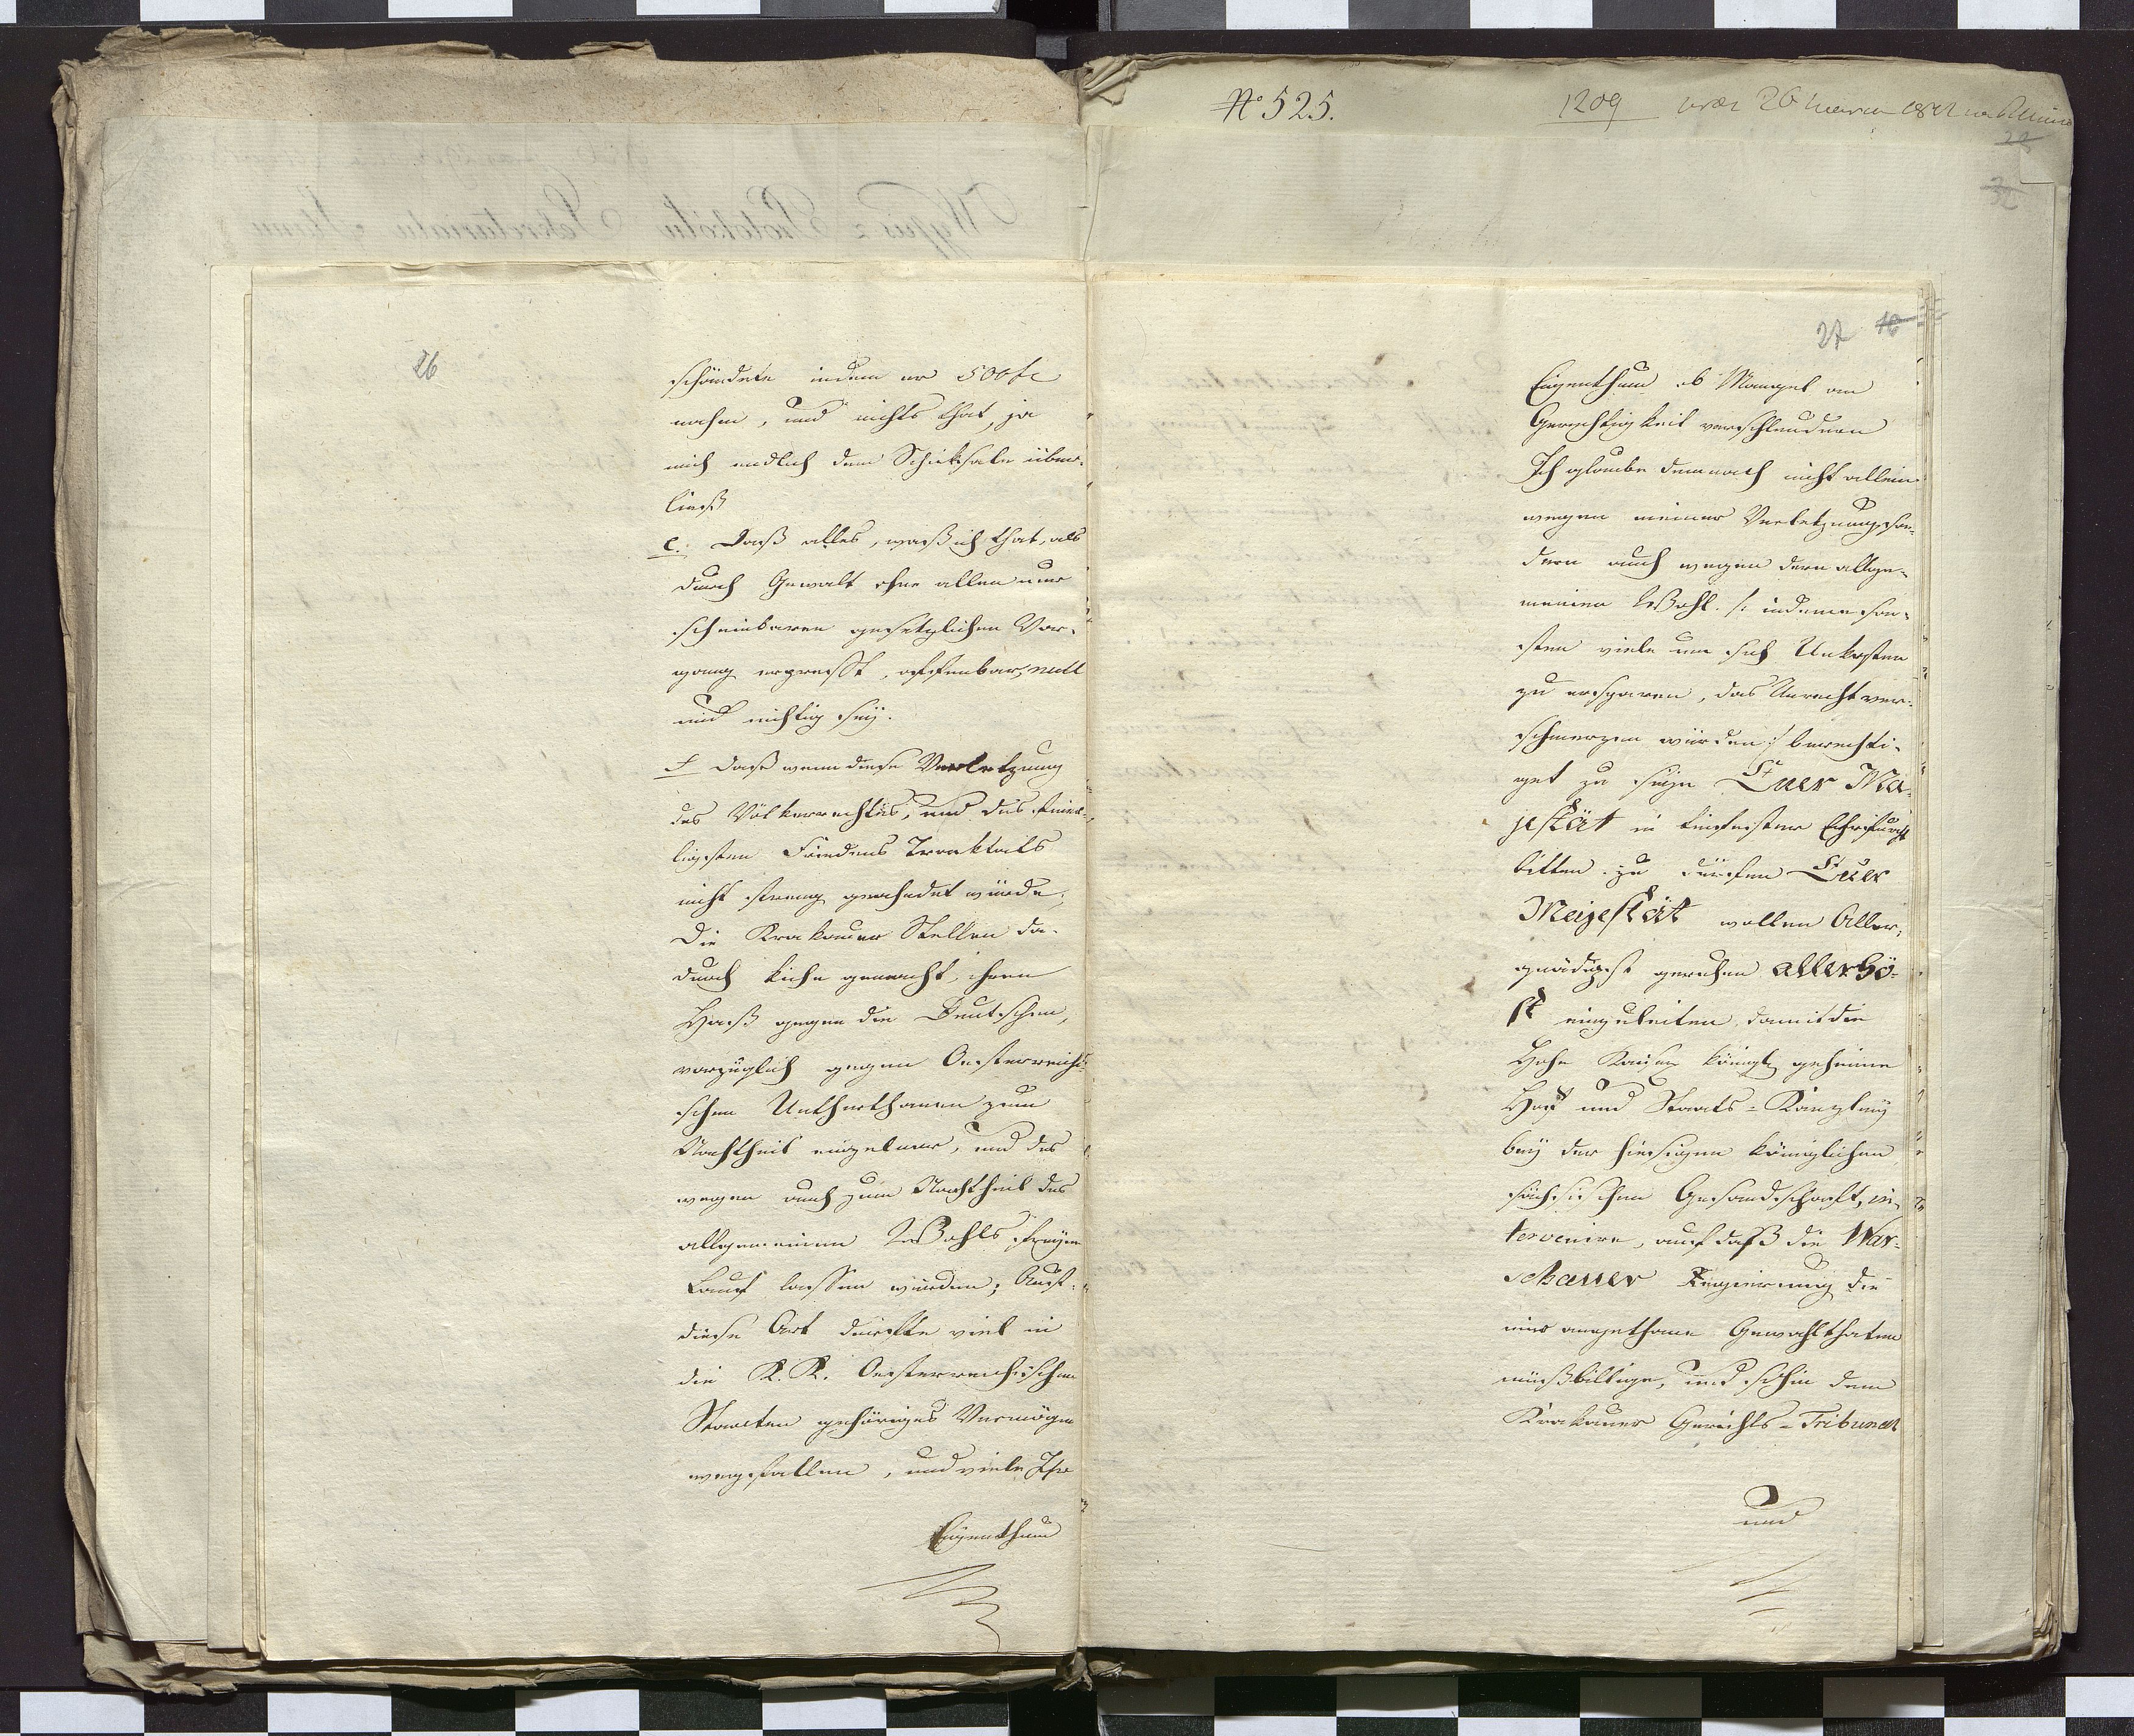 N° 525.
1209
26
schändete indem er 500 fl
nahm, und nichts that, ja
mich endlich dem Schicksale über-
ließ
e. Daß alles, waß ich that, als
durch Gewalt ohne allen nur
scheinbaren gesetzlichen Vor-
gang erpresst, offenbar, null
und nichtig sey.
f daß wenn diese Verletzung
des Völkerrechtes, und des
Friedens Tracktats
nicht streng geahndet würde,
die Krakauer Stellen da-
durch kühn gemacht, ihren
Haß gegen die Deutschen,
vorzüglich gegen Oesterreichi-
schen Unterthanen zum
Nachtheil einzelner, und des
wegen auch zum Nachtheil des
allgemeinen Wohls freyen
Lauf lassen würden; Auf
diese Art dürfte viel in
die K. K. Oesterreichischen
Staaten gehöriges Vermögen
wegfallen, und viele Ihr
Eigenthum
27 18
Eigenthum ob Mangel an
Gerechtigkeit verschleudern
Ich glaube demnach nicht allein
wegen meiner Verletzung, son-
dern auch wegen dem allge-
meinen Wohl /: indeme son-
sten viele um sich Unkosten
zu ersparen, das Unrecht ver-
schmerzen würden :/ berechti-
get zu seyn Euer Ma-
jestät in tiefester Ehrfurcht
bitten zu dürfen Euer
Majestät wollen Aller-
gnädigst geruhen allerhö-
st einzuleiten, damit die
Hohe Kaiser königl geheime
Hof und Staats-Kanzley
bey der hiesigen königlichen
sächsischen Gesandschaft, in-
tervenire, auf daß die War-
schauer Regierung die
mir angethane Gewaltthaten
mißbillige, und sohin dem
Krakauer Gerichts-Tribunal
und